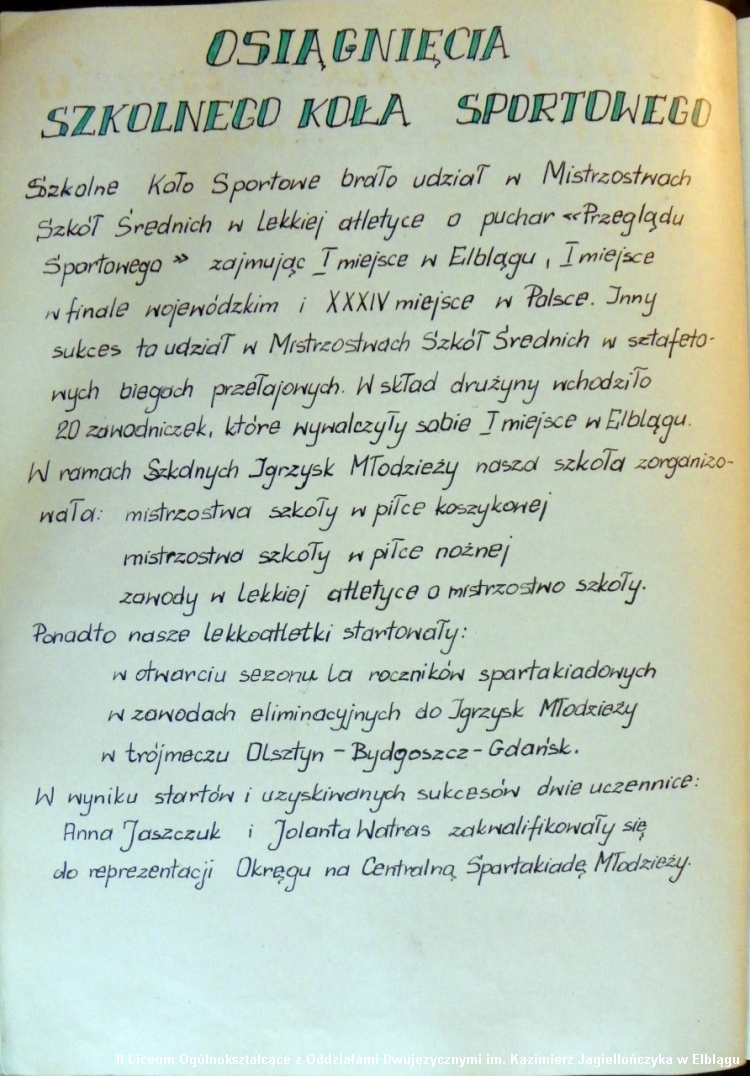 OSIĄGNIĘCIA
SZKOLNEGO KOŁA SPORTOWEGO
Szkolne Koło Sportowe brało udział w Mistrzostwach
Szkół Średnich w lekkiej atletyce o puchar «Przeglądu
Sportowego» zajmując I miejsce w Elblągu, I miejsce
w finale wojewódzkim i XXXIV miejsce w Polsce. Inny
sukces to udział w Mistrzostwach Szkół Średnich w sztafeto-
wych biegach przełajowych. W skład drużyny wchodziło
20 zawodniczek, które wywalczyły sobie I miejsce w Elblągu.
W ramach Szkolnych Igrzysk Młodzieży nasza szkoła zorganizo-
wała: mistrzostwa szkoły w piłce koszykowej
mistrzostwa szkoły w piłce nożnej
zawody w lekkiej atletyce o mistrzostwo szkoły.
Ponadto nasze lekkoatletki startowały:
w otwarciu sezonu la roczników spartakiadowych
w zawodach eliminacyjnych do Igrzysk Młodzieży
w trójmeczu Olsztyn - Bydgoszcz - Gdańsk.
W wyniku startów i uzyskiwanych sukcesów dwie uczennice:
Anna Jaszczuk i Jolanta Watras zakwalifikowały się
do reprezentacji Okręgu na Centralną Spartakiadę Młodzieży.
II Liceum Ogólnokształcące z Oddziałami Dwujęzycznymi im. Kazimierz Jagiellończyka w Elblągu